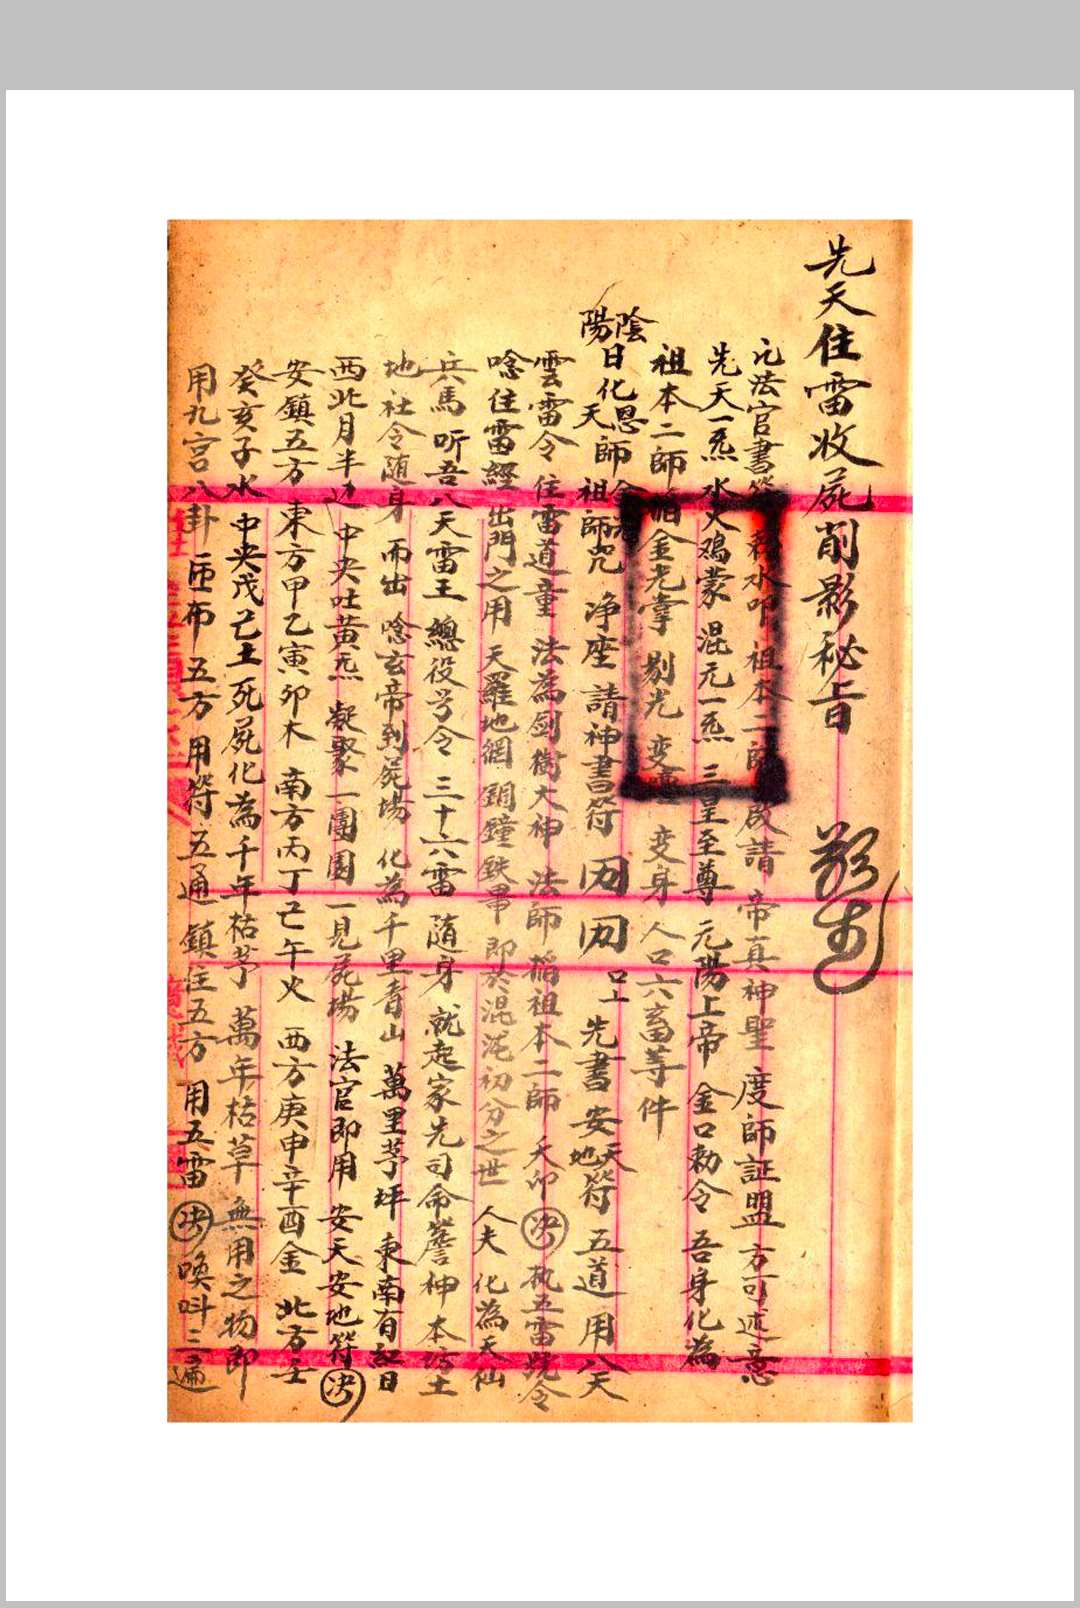 先天住雷收屍削影秘旨
凡法官書符 敕水叩 祖本二師 啟請 帝真神聖 度師証盟 方可述意
先天一炁 水火鴻蒙 混元一炁 三皇至尊 元陽上帝 金口勅令 吾身化為
祖本二師 金光掌 剔光 变 变身 人口六畜等件
陰陽日化恩師 天 祖師咒 净座 請神書符 口上 先書安天地符 五道 用八天
雲雷令 住雷道童 法為剑樹大神 法師稲祖本二師 天卯 决 执五雷號令
唸住雷經 出門之用 天羅地網 銅鐘鉄 即於混沌初分之世 人夫化為天仙
兵馬 听吾八天雷王 總役号令 三十六雷 随身 就起家先司命 神 本坊土
地社令随身 而出 唸玄帝到屍場 化為千里青山 萬里茅坪 東南有紅日
西北月半边 中央吐黄炁 凝聚一團圓 一見屍場 法官即用 安天安地符 决
安鎮五方 東方甲乙寅卯木 南方丙丁巳午火 西方庚申辛酉金 北方壬
癸亥子水 中央戊己土 死屍化為千年枯茅 萬年枯草 無用之物 即
用九宫八卦 匝布五方 用符五通 鎮住五方 用五雷 决 唤呌三遍